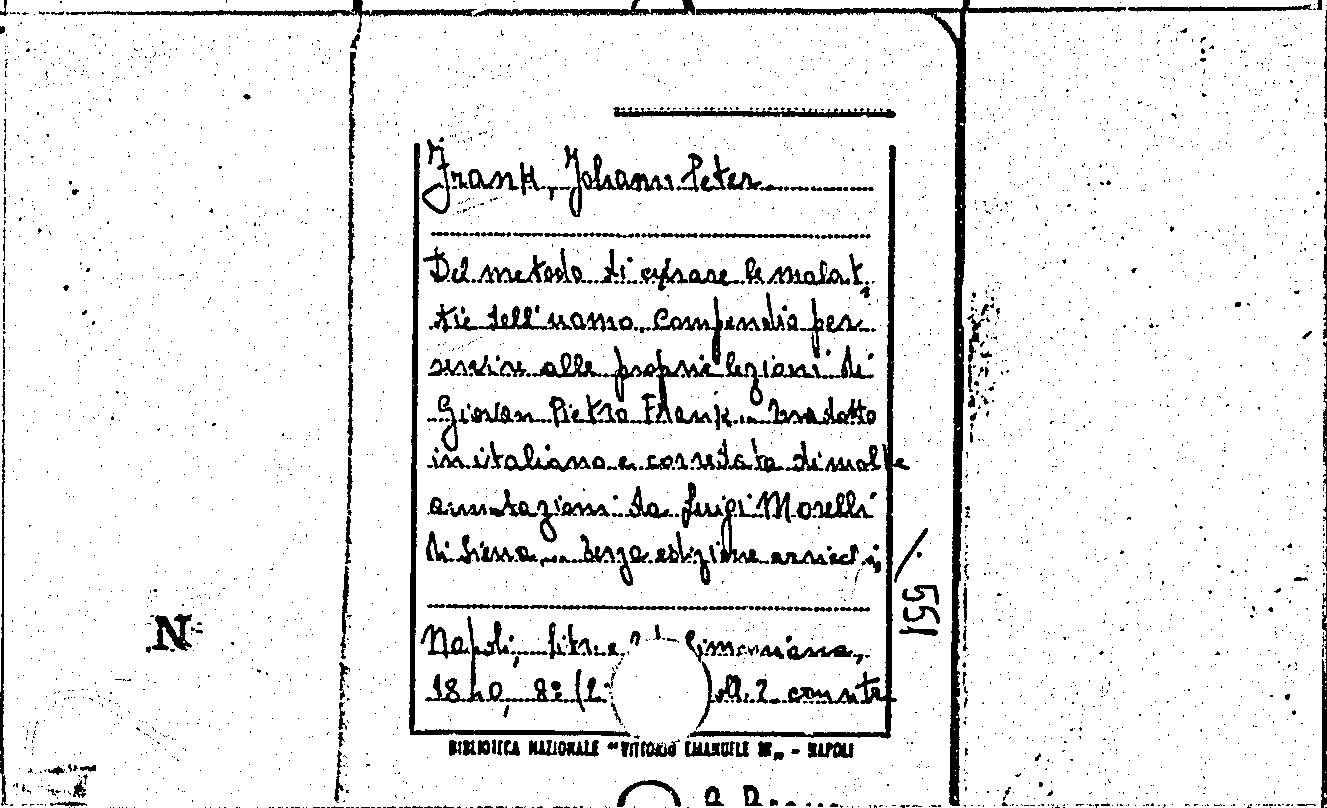 Frank, Johann Peter
Del metodo di curare le malat-
tie dell'uomo. Compendio per
servire alle proprie lezioni di
Giovan Pietro Frank... Tradotto
in italiano e corredato di molte
annotazioni da Luigi Morelli
di Siena... Terza edizione
Napoli, Simoniana,
1840, 8º (2. voll. 2
551
N
BIBLIOTECA NAZIONALE "VITTORIO EMANUELE III„ - NAPOLI